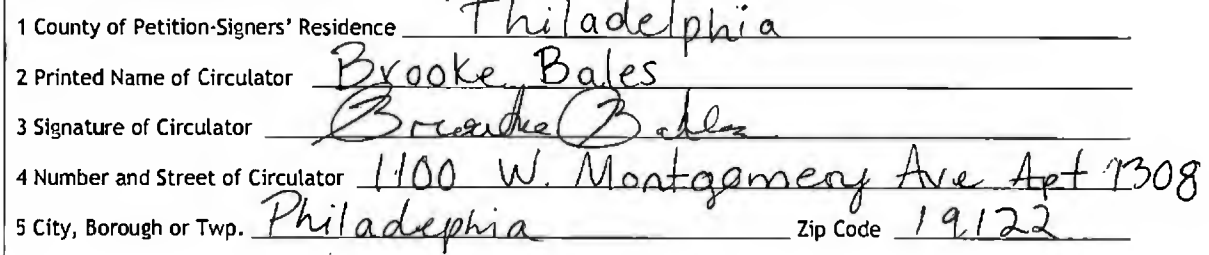 1 County of Petition-Signers' Residence Philadelphia
2 Printed Name of Circulator Brooke Bales
3 Signature of Circulator Brooke Bales
4 Number and Street of Circulator 1100 W. Montgomery Ave Apt 1308
5 City, Borough or Twp. Philadephia Zip Code 19122